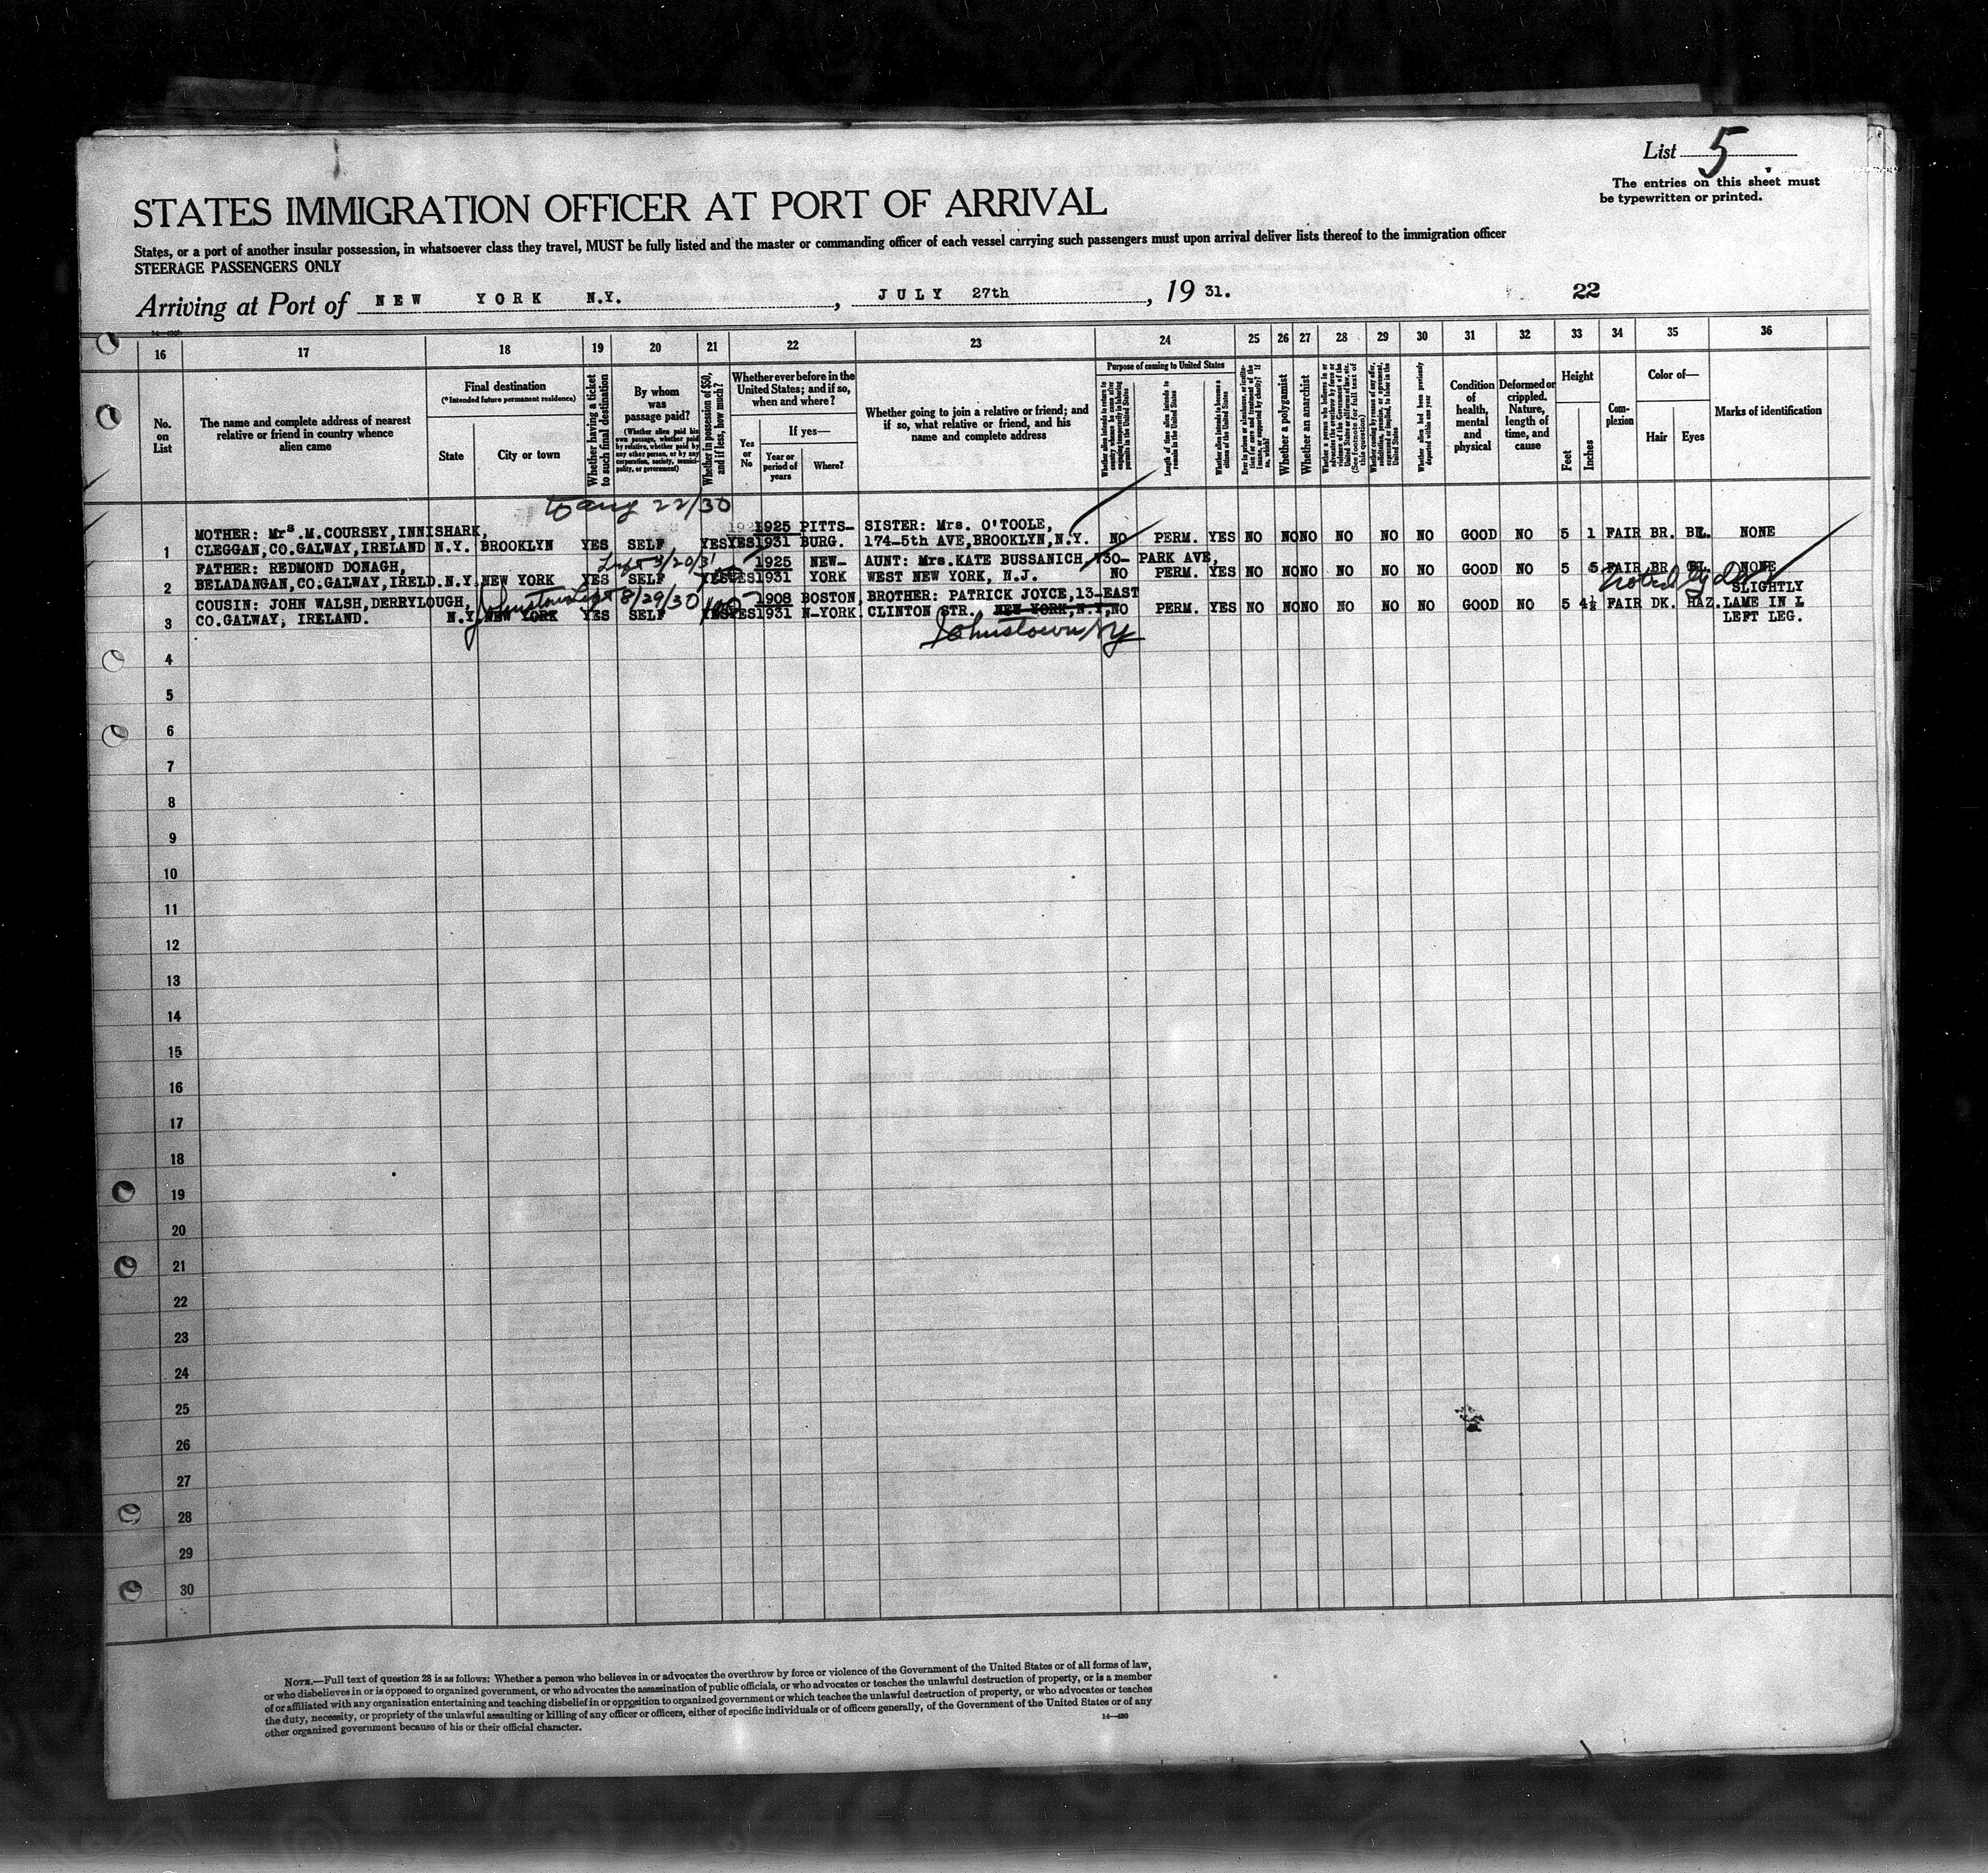 List 5
The entries on this sheet must
be typewritten or printed.
STATES IMMIGRATION OFFICER AT PORT OF ARRIVAL
States, or a port of another insular possession, in whatsoever class they travel, MUST be fully listed and the master or commanding officer of each vessel carrying such passengers must upon arrival deliver lists thereof to the immigration officer
STEERAGE PASSENGERS ONLY
Arriving at Port of NEW YORK N.Y. , JULY 27th , 19 31.
22
16 17 18 19 20 21 22 23 24 25 26 27 28 29 30 31 32 33 34 35 36
No.
on
List
The name and complete address of nearest
relative or friend in country whence
alien came
Final destination
(*Intended future permanent residence)
State
City or town
Whether having a ticket
to such final destination
By whom
was
passage paid?
(Whether alien paid his
own passage, whether paid
by relative, whether paid by
any other person, or by any
corporation, society, munici-
pality, or government)
Whether in possession of $50,
and if less, how much?
Whether ever before in the
United States; and if so,
when and where?
Yes
or
No
If yes—
Year or
period of
years
Where?
Whether going to join a relative or friend; and
if so, what relative or friend, and his
name and complete address
Purpose of coming to United States
Length of time alien intends to
remain in the United States
Whether alien intends to become a
citizen of the United States
Whether a polygamist
Whether an anarchist
Whether alien had been previously
deported within one year
Condition
of
health,
mental
and
physical
Deformed or
crippled.
Nature,
length of
time, and
cause
Height
Feet
Inches
Com-
plexion
Color of—
Hair
Eyes
Marks of identification
to Aug 22/30
MOTHER: Mrs.M.COURSEY,INNISHARK, 1925 PITTS- SISTER: Mrs. O'TOOLE,
1 CLEGGAN,CO.GALWAY,IRELAND N.Y. BROOKLYN YES SELF YES YES 1931 BURG. 174-5th AVE,BROOKLYN,N.Y. NO PERM. YES NO NO NO NO NO NO GOOD NO 5 1 FAIR BR. BL. NONE
3/20/31
FATHER: REDMOND DONAGH, 1925 NEW- AUNT: Mrs.KATE BUSSANICH,730- PARK AVE,
2 BELADANGAN,CO.GALWAY,IRELD. N.Y. NEW YORK YES SELF YES YES 1931 YORK WEST NEW YORK, N.J. NO PERM. YES NO NO NO NO NO NO GOOD NO 5 5 FAIR BR BL. NONE
Johnstown 8/29/30 100
COUSIN: JOHN WALSH,DERRYLOUGH, 1908 BOSTON BROTHER: PATRICK JOYCE,13-EAST SLIGHTLY
3 CO.GALWAY, IRELAND. N.Y. NEW YORK YES SELF YES YES 1931 N-YORK. CLINTON STR. NEW YORK,N.Y, NO PERM. YES NO NO NO NO NO NO GOOD NO 5 4½ FAIR DK. HAZ. LAME IN L
LEFT LEG.
Johnstown NY
4
5
6
7
8
9
10
11
12
13
14
15
16
17
18
19
20
21
22
23
24
25
26
27
28
29
30
NOTE.—Full text of question 28 is as follows: Whether a person who believes in or advocates the overthrow by force or violence of the Government of the United States or of all forms of law,
or who disbelieves in or is opposed to organized government, or who advocates the assassination of public officials, or who advocates or teaches the unlawful destruction of property, or is a member
of or affiliated with any organization entertaining and teaching disbelief in or opposition to organized government or which teaches the unlawful destruction of property, or who advocates or teaches
the duty, necessity, or propriety of the unlawful assaulting or killing of any officer or officers, either of specific individuals or of officers generally, of the Government of the United States or of any
other organized government because of his or their official character.
14—430